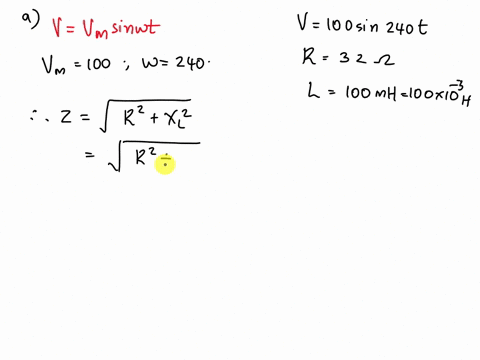 a) V = Vm sinwt
Vm = 100 ; w = 240.
∴ Z = √(R² + XL²)
= √(R² +
V = 100 sin 240 t
R = 32 Ω
L = 100 mH = 100 × 10⁻³ H